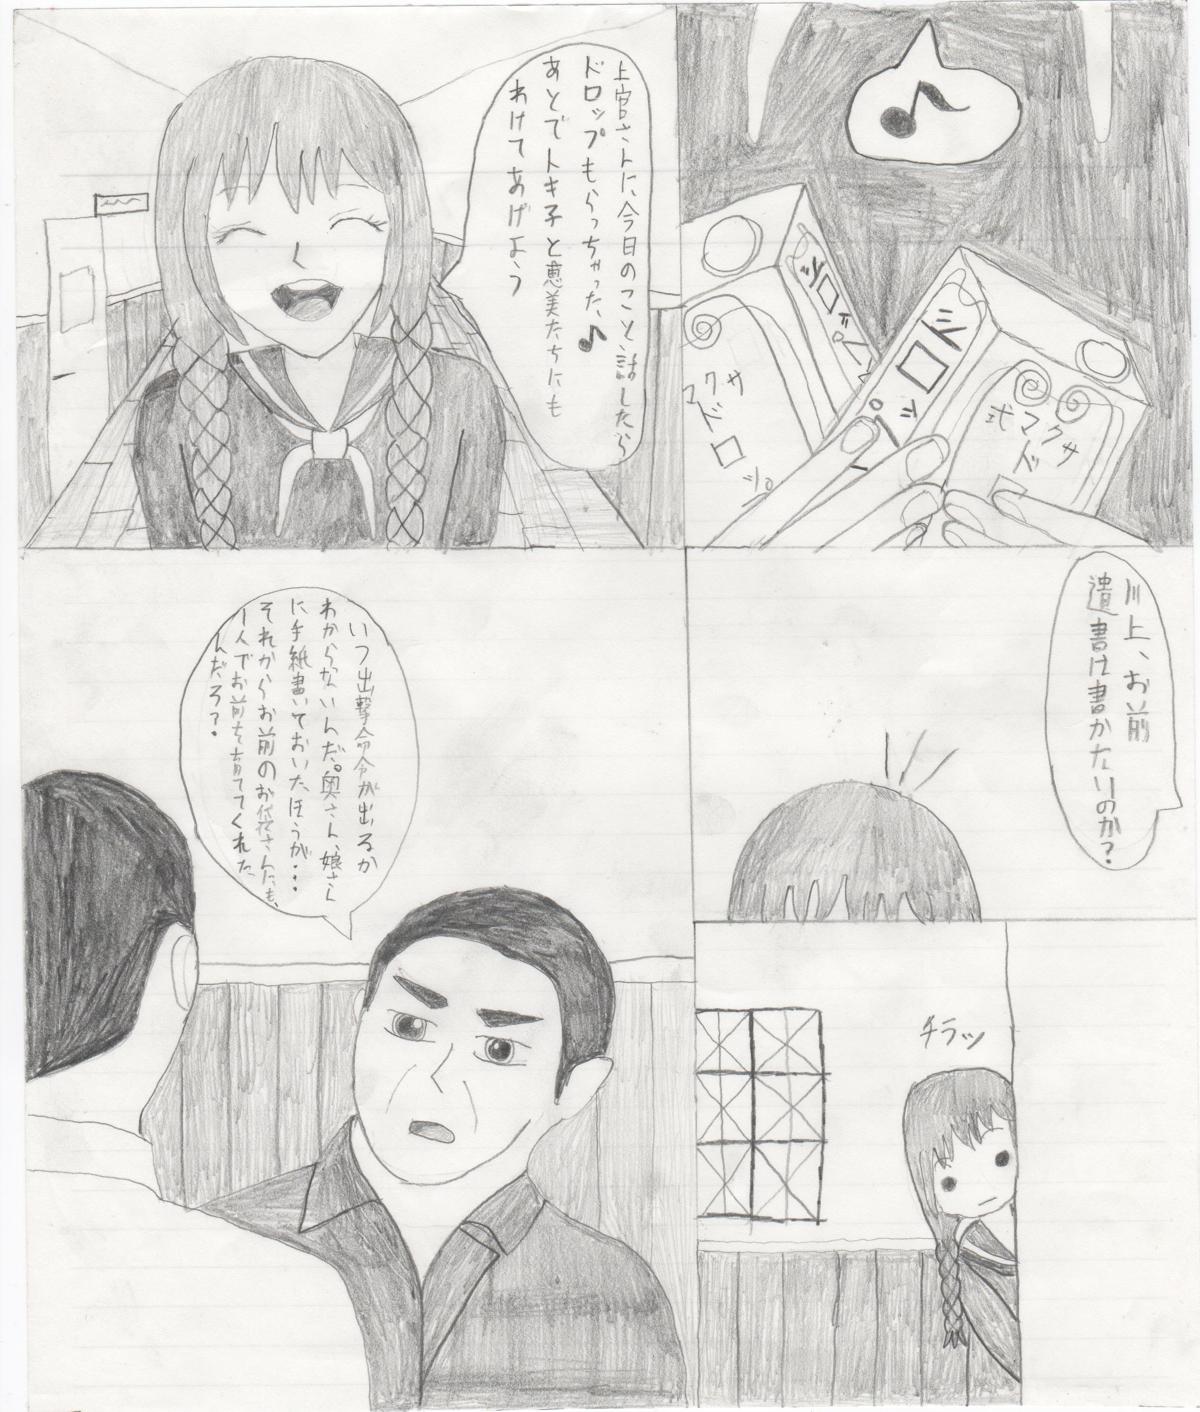 ドロップ
サクマドロ
ドロップ
サクマドロ
式
上官さんに、今日のこと、話したら
ドロップもらっちゃった♪
あとでトキ子と恵美たちにも
わけてあげよう
川上、お前
遺書は書かないのか?
チラッ
いつ出撃命令が出るか
わからないんだ。奥さん、娘さん
に手紙書いておいたほうが・・・
それからお前のお袋さんにも、
1人でお前を育ててくれた
んだろ?